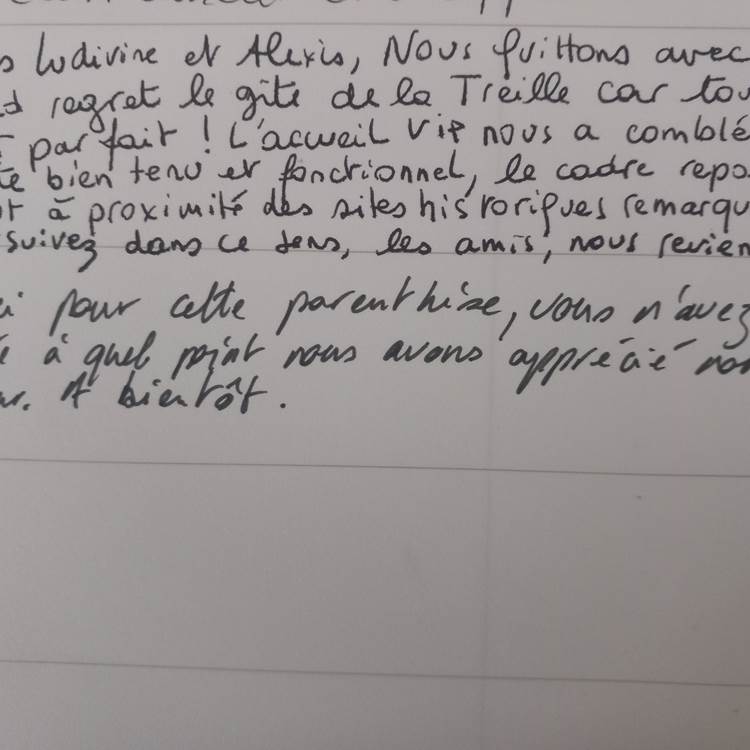 Ludivine et Alexis, Nous quittons avec
regret le gîte de la Treille car tou
parfait ! L'accueil Vip nous a comblé
te bien tenu et fonctionnel, le cadre repo
à proximité des sites historiques remarqu
suivez dans ce sens, les amis, nous revien
pour cette parenthèse, vous n'avez
à quel point nous avons apprécié no
A bientôt.